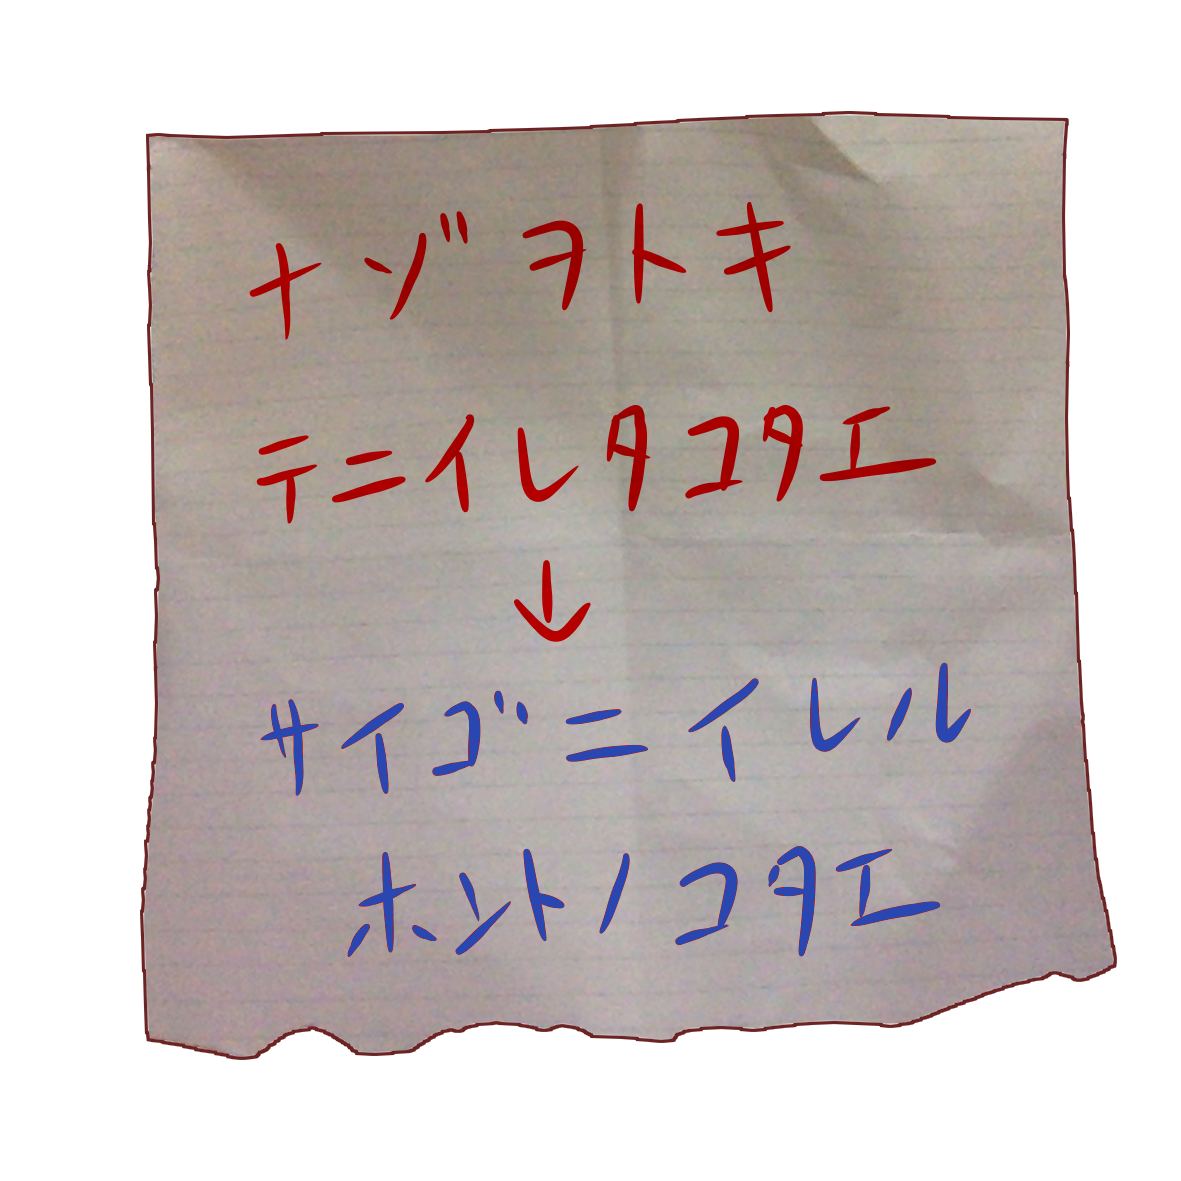 ナゾヲトキ
テニイレタコタエ
↓
サイゴニイレル
ホントノコタエ